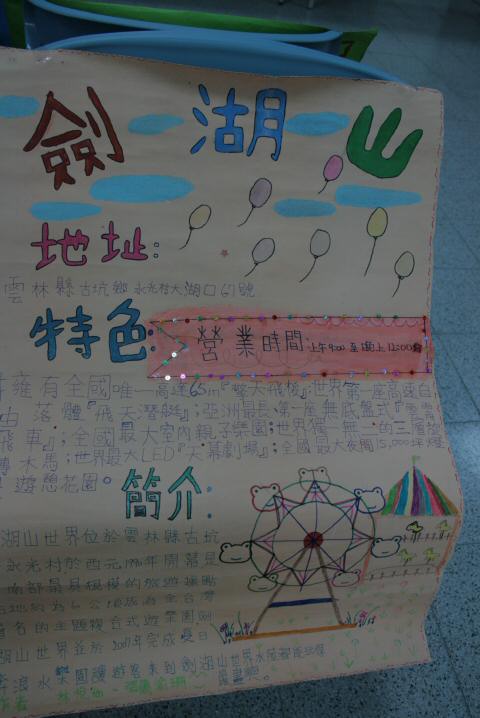 劍湖山
地址:
雲林縣古坑鄉永光村大湖口67號
特色:
營業時間:上午9:00至晚上12:00
擁有全國唯一高達65m『擎天飛梭』;世界第一座高速自
由落體『飛天潛艇』;亞洲最長、第一座無底盤式『
飛車』;全國最大室內親子樂園;世界獨一無二的三層
木馬;世界最大LED『天幕劇場』;全國最大夜間15,000
遊憩花園。
簡介:
湖山世界位於雲林縣古坑
永光村於西元1990年開幕是
南部最具規模的旅遊據點
佔地約為60公頃成為全台灣
著名的主題複合式遊樂園劍
湖山世界並於2007年完成夏日
水樂園讓遊客來到劍湖山世界